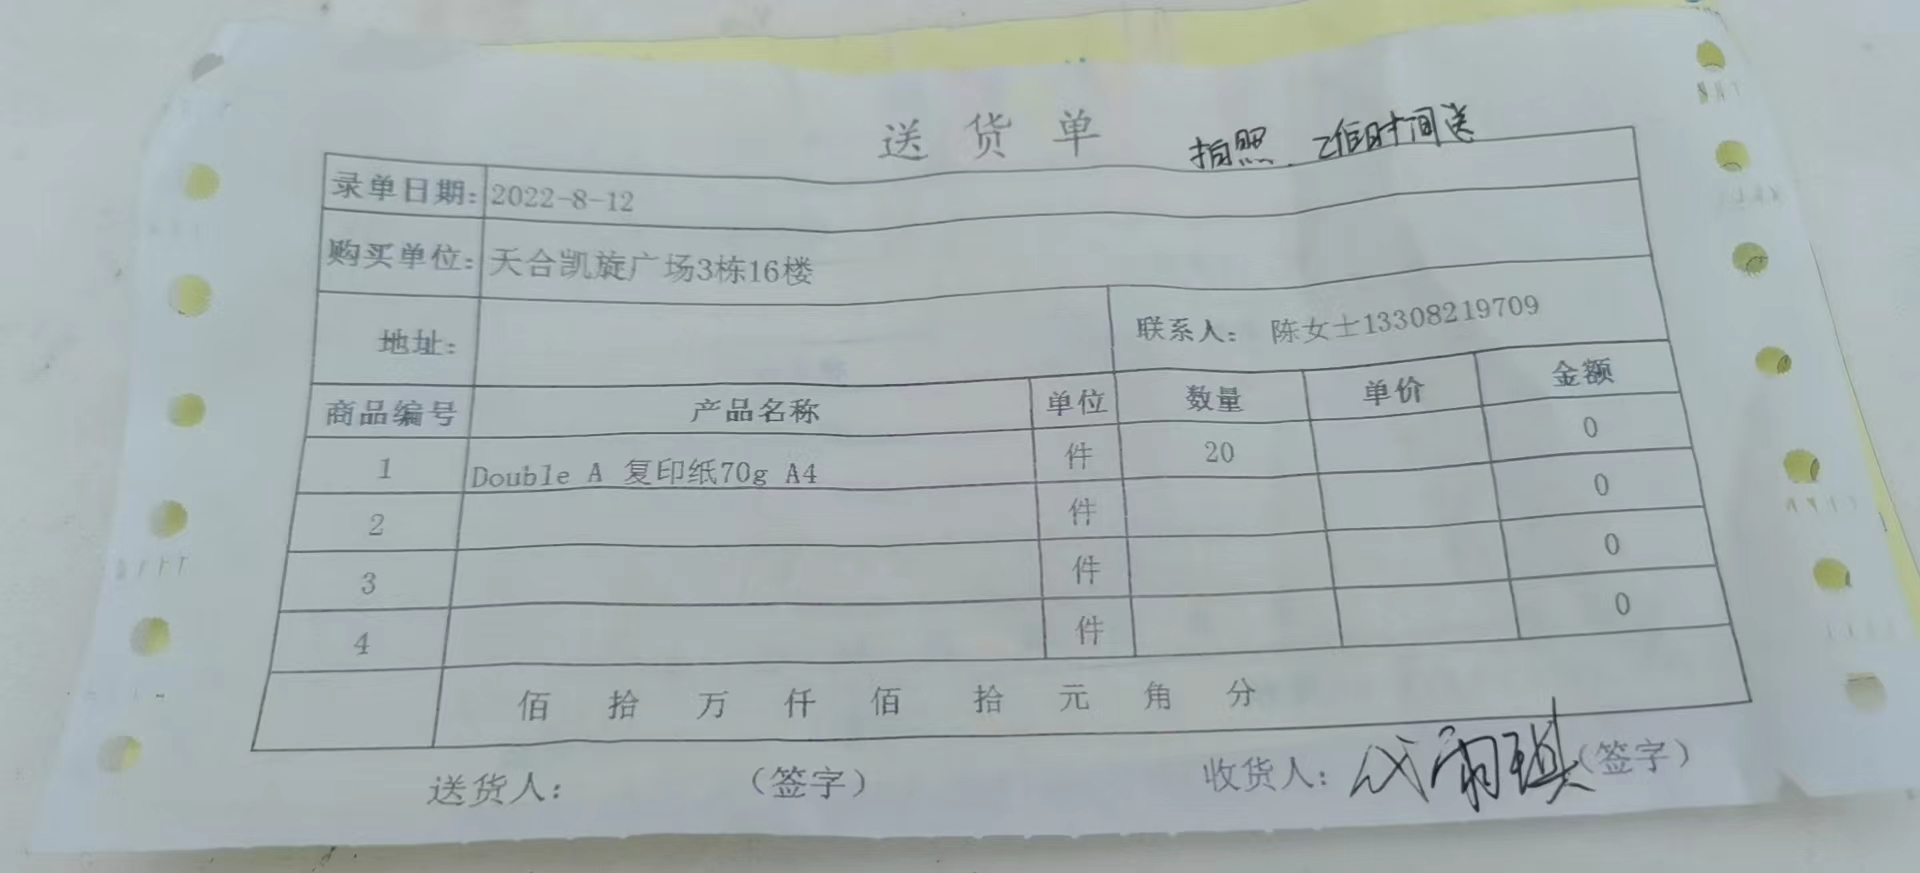 送货单
拍照. 工作时间送
录单日期: 2022-8-12
购买单位: 天合凯旋广场3栋16楼
地址: 联系人: 陈女士13308219709
商品编号 产品名称 单位 数量 单价 金额
1 Double A 复印纸70g A4 件 20 0
2 件 0
3 件 0
4 件 0
佰 拾 万 仟 佰 拾 元 角 分
送货人: (签字) 收货人: (签字)